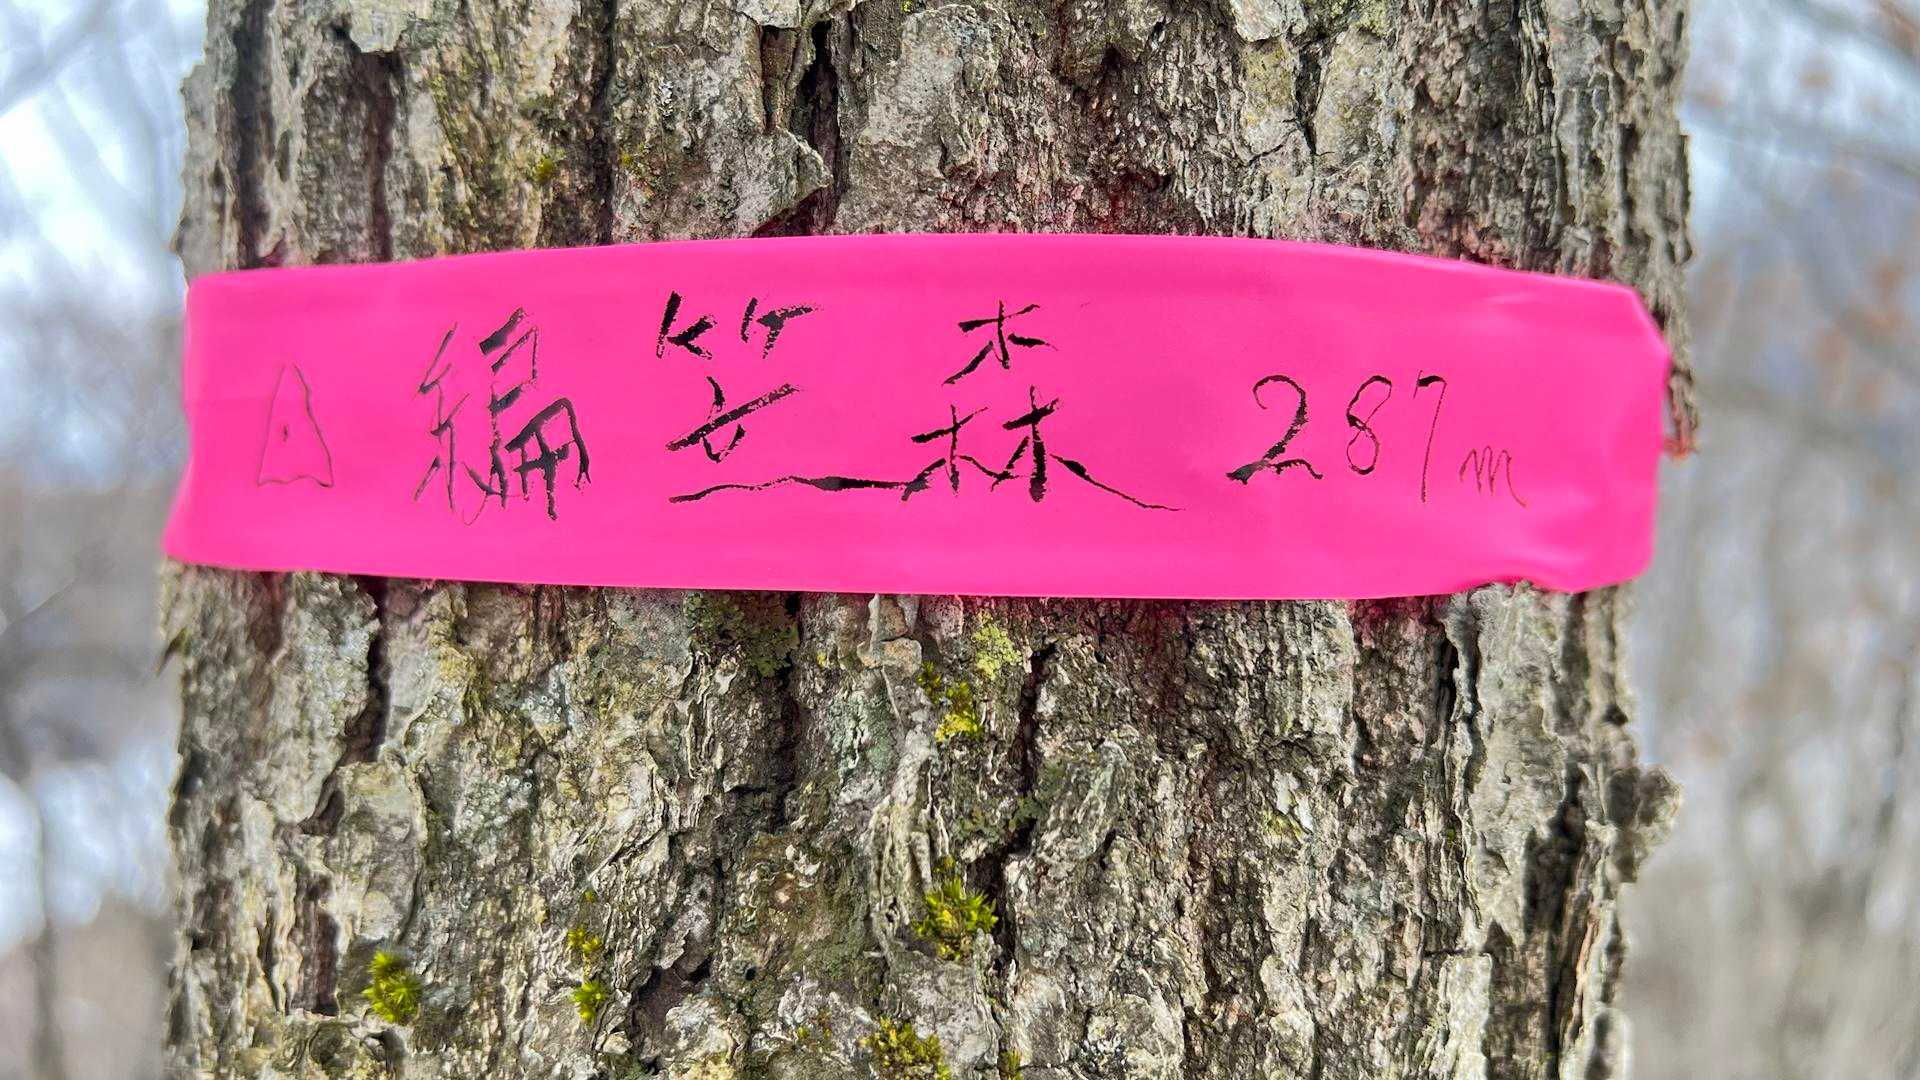 △ 編笠森 287m